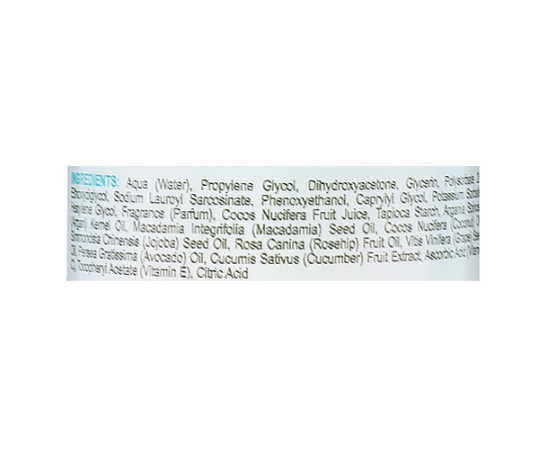 INGREDIENTS: Aqua (Water), Propylene Glycol, Dihydroxyacetone, Glycerin, Polysorbate
Ethoxydiglycol, Sodium Lauroyl Sarcosinate, Phenoxyethanol, Caprylyl Glycol, Potassium
Hexylene Glycol, Fragrance (Parfum), Cocos Nucifera Fruit Juice, Tapioca Starch, Argania
(Argan) Kernel Oil, Macadamia Integrifolia (Macadamia) Seed Oil, Cocos Nucifera (Coconut)
Simmondsia Chinensis (Jojoba) Seed Oil, Rosa Canina (Rosehip) Fruit Oil, Vitis Vinifera (Grape)
Oil, Persea Gratissima (Avocado) Oil, Cucumis Sativus (Cucumber) Fruit Extract, Ascorbic Acid
C), Tocopheryl Acetate (Vitamin E), Citric Acid